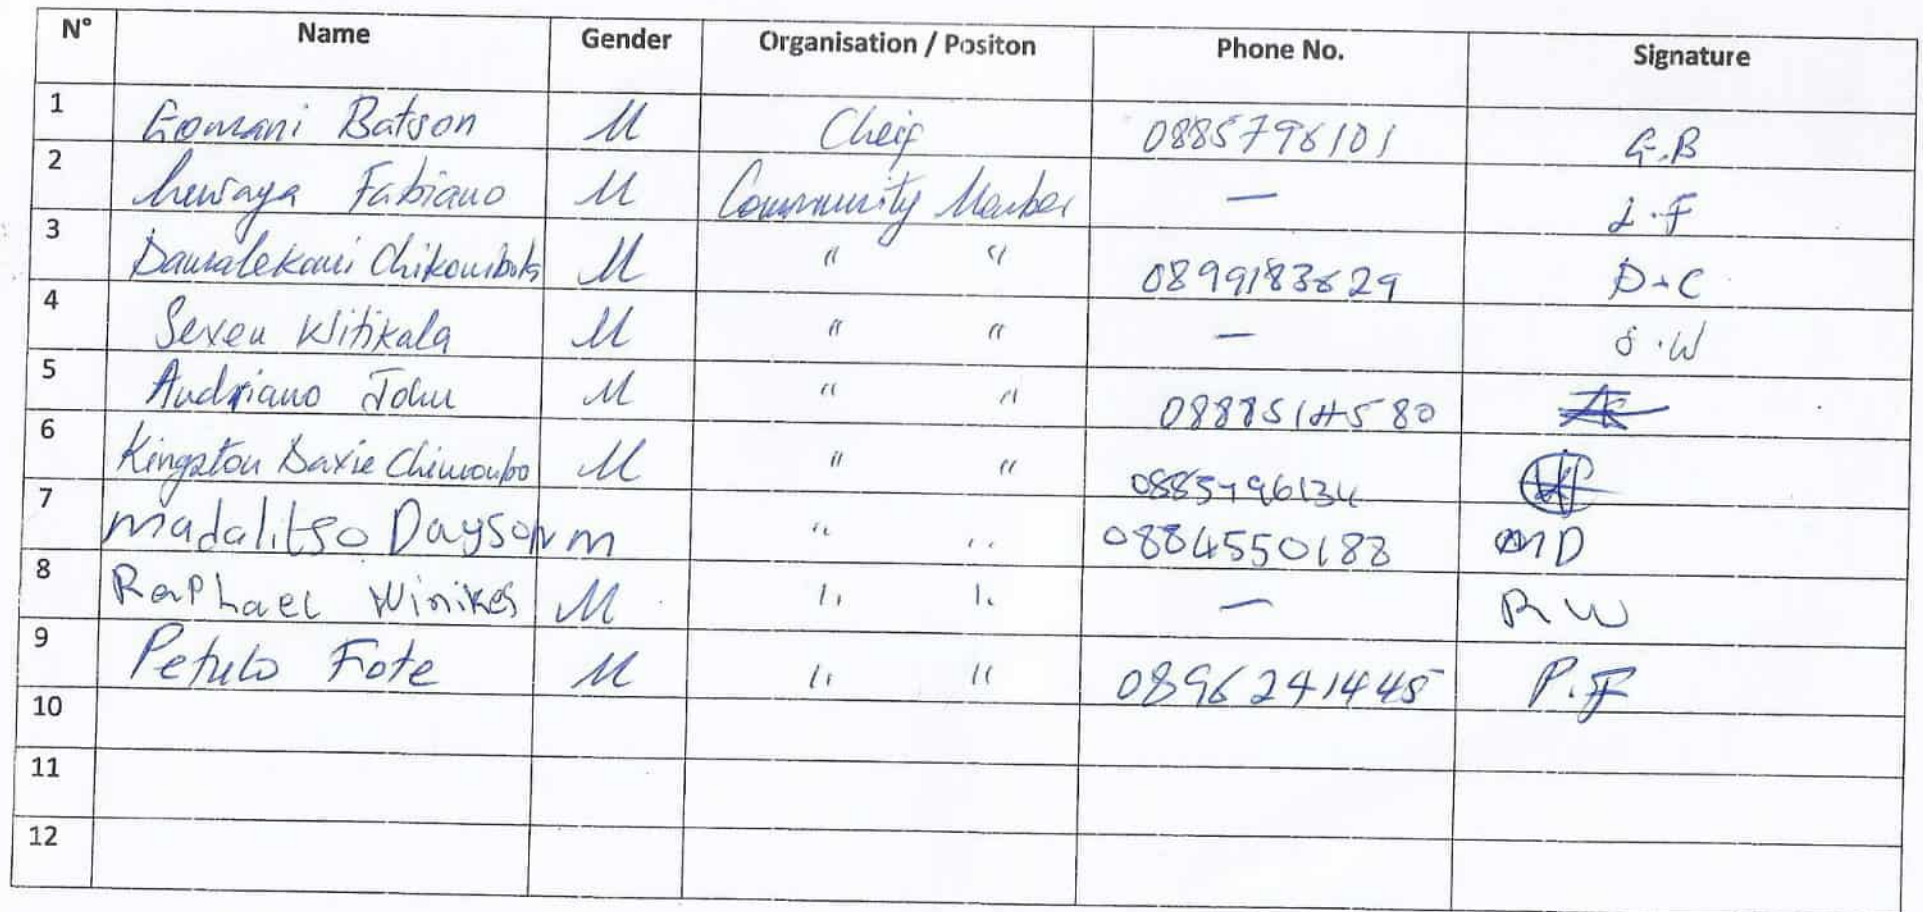 N° Name Gender Organisation / Positon Phone No. Signature
1 Gomani Batson M Cheif 0885796101 G.B
2 Fabiano M Community Member — L.F
3 M " " 0899183629 D.C
4 Seven Witikala M " " — S.W
5 Andriano John M " " 0888514580
6 Kingston Daxie M " "
7 Madalitso Dayson m " " 0884550188 MD
8 Raphael Winikes M " " — RW
9 Petulo Fote M " " 0896241445 P.F
10
11
12